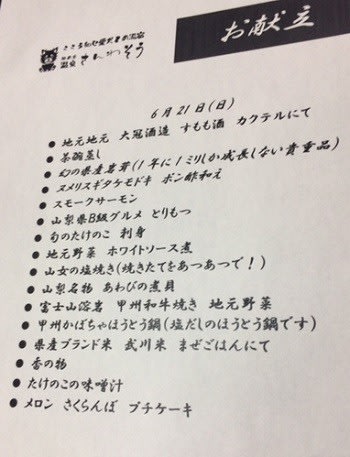 お献立
さんわそう
6月21日(日)
● 地元地元 大冠酒造 すもも酒 カクテルにて
● 茶碗蒸し
● 幻の県産岩茸(1年に1ミリしか成長しない貴重品)
● ヌメリスギタケモドキ ポン酢和え
● スモークサーモン
● 山梨県B級グルメ とりもつ
● 旬のたけのこ 刺身
● 地元野菜 ホワイトソース煮
● 山女の塩焼き(焼きたてをあつあつで!)
● 山梨名物 あわびの煮貝
● 富士山溶岩 甲州和牛焼き 地元野菜
● 甲州かぼちゃほうとう鍋(塩だしのほうとう鍋です)
● 県産ブランド米 武川米 まぜごはんにて
● 香の物
● たけのこの味噌汁
● メロン さくらんぼ プチケーキ